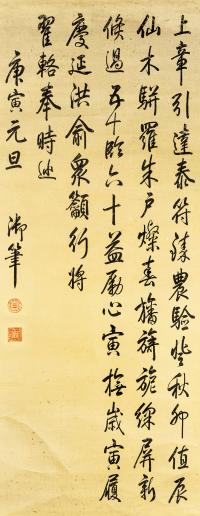 上章引達泰符臻農驗登秋卯值辰
仙木駢羅朱戶燦春旛旖旎綵屏新
倏過五十臨六十益勵心寅撫歲寅履
慶延洪俞衆籲行將
翟輅奉時巡
庚寅元旦
御筆